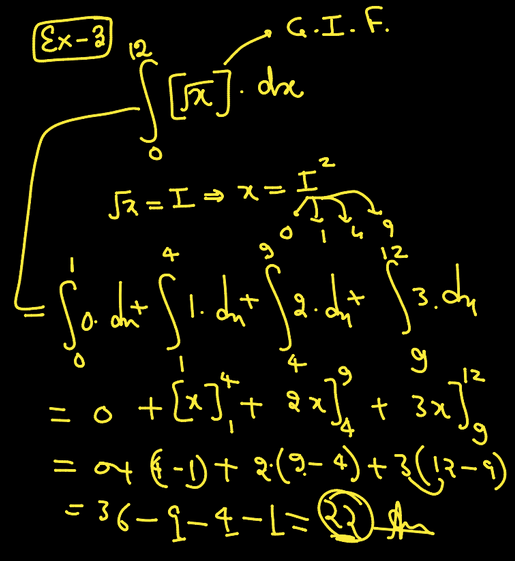 Ex-3
G.I.F.
∫₀¹² [√x]. dx
√x = I ⇒ x = I²
0 1 4 9
= ∫₀¹ 0. dx + ∫₁⁴ 1. dx + ∫₄⁹ 2. dx + ∫₉¹² 3. dx
= 0 + [x]₁⁴ + 2x]₄⁹ + 3x]₉¹²
= 0+ (4-1) + 2.(9-4) + 3(12-9)
= 36-9-4-1 = 22 Ans